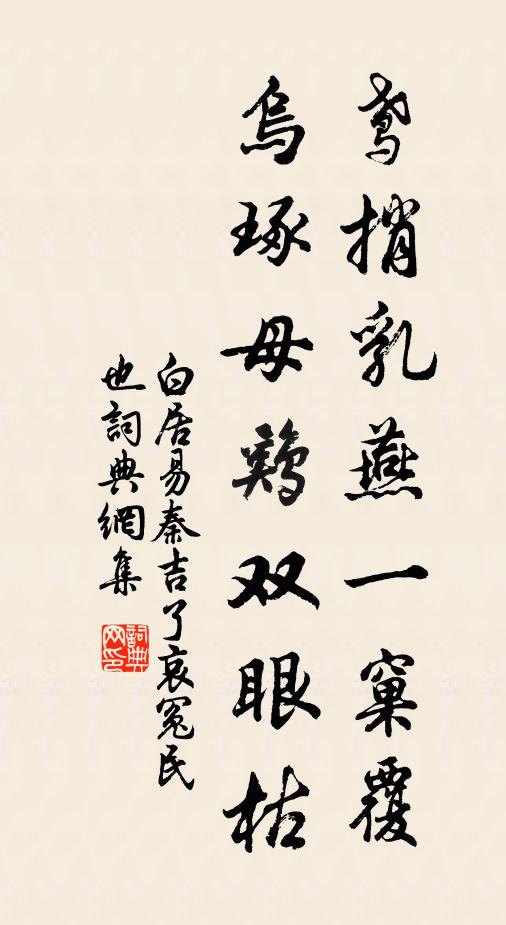 鸢捎乳燕一窠覆
烏琢母鷄双眼枯
白居易秦吉了哀冤民
也詞典網集
詞典
网印